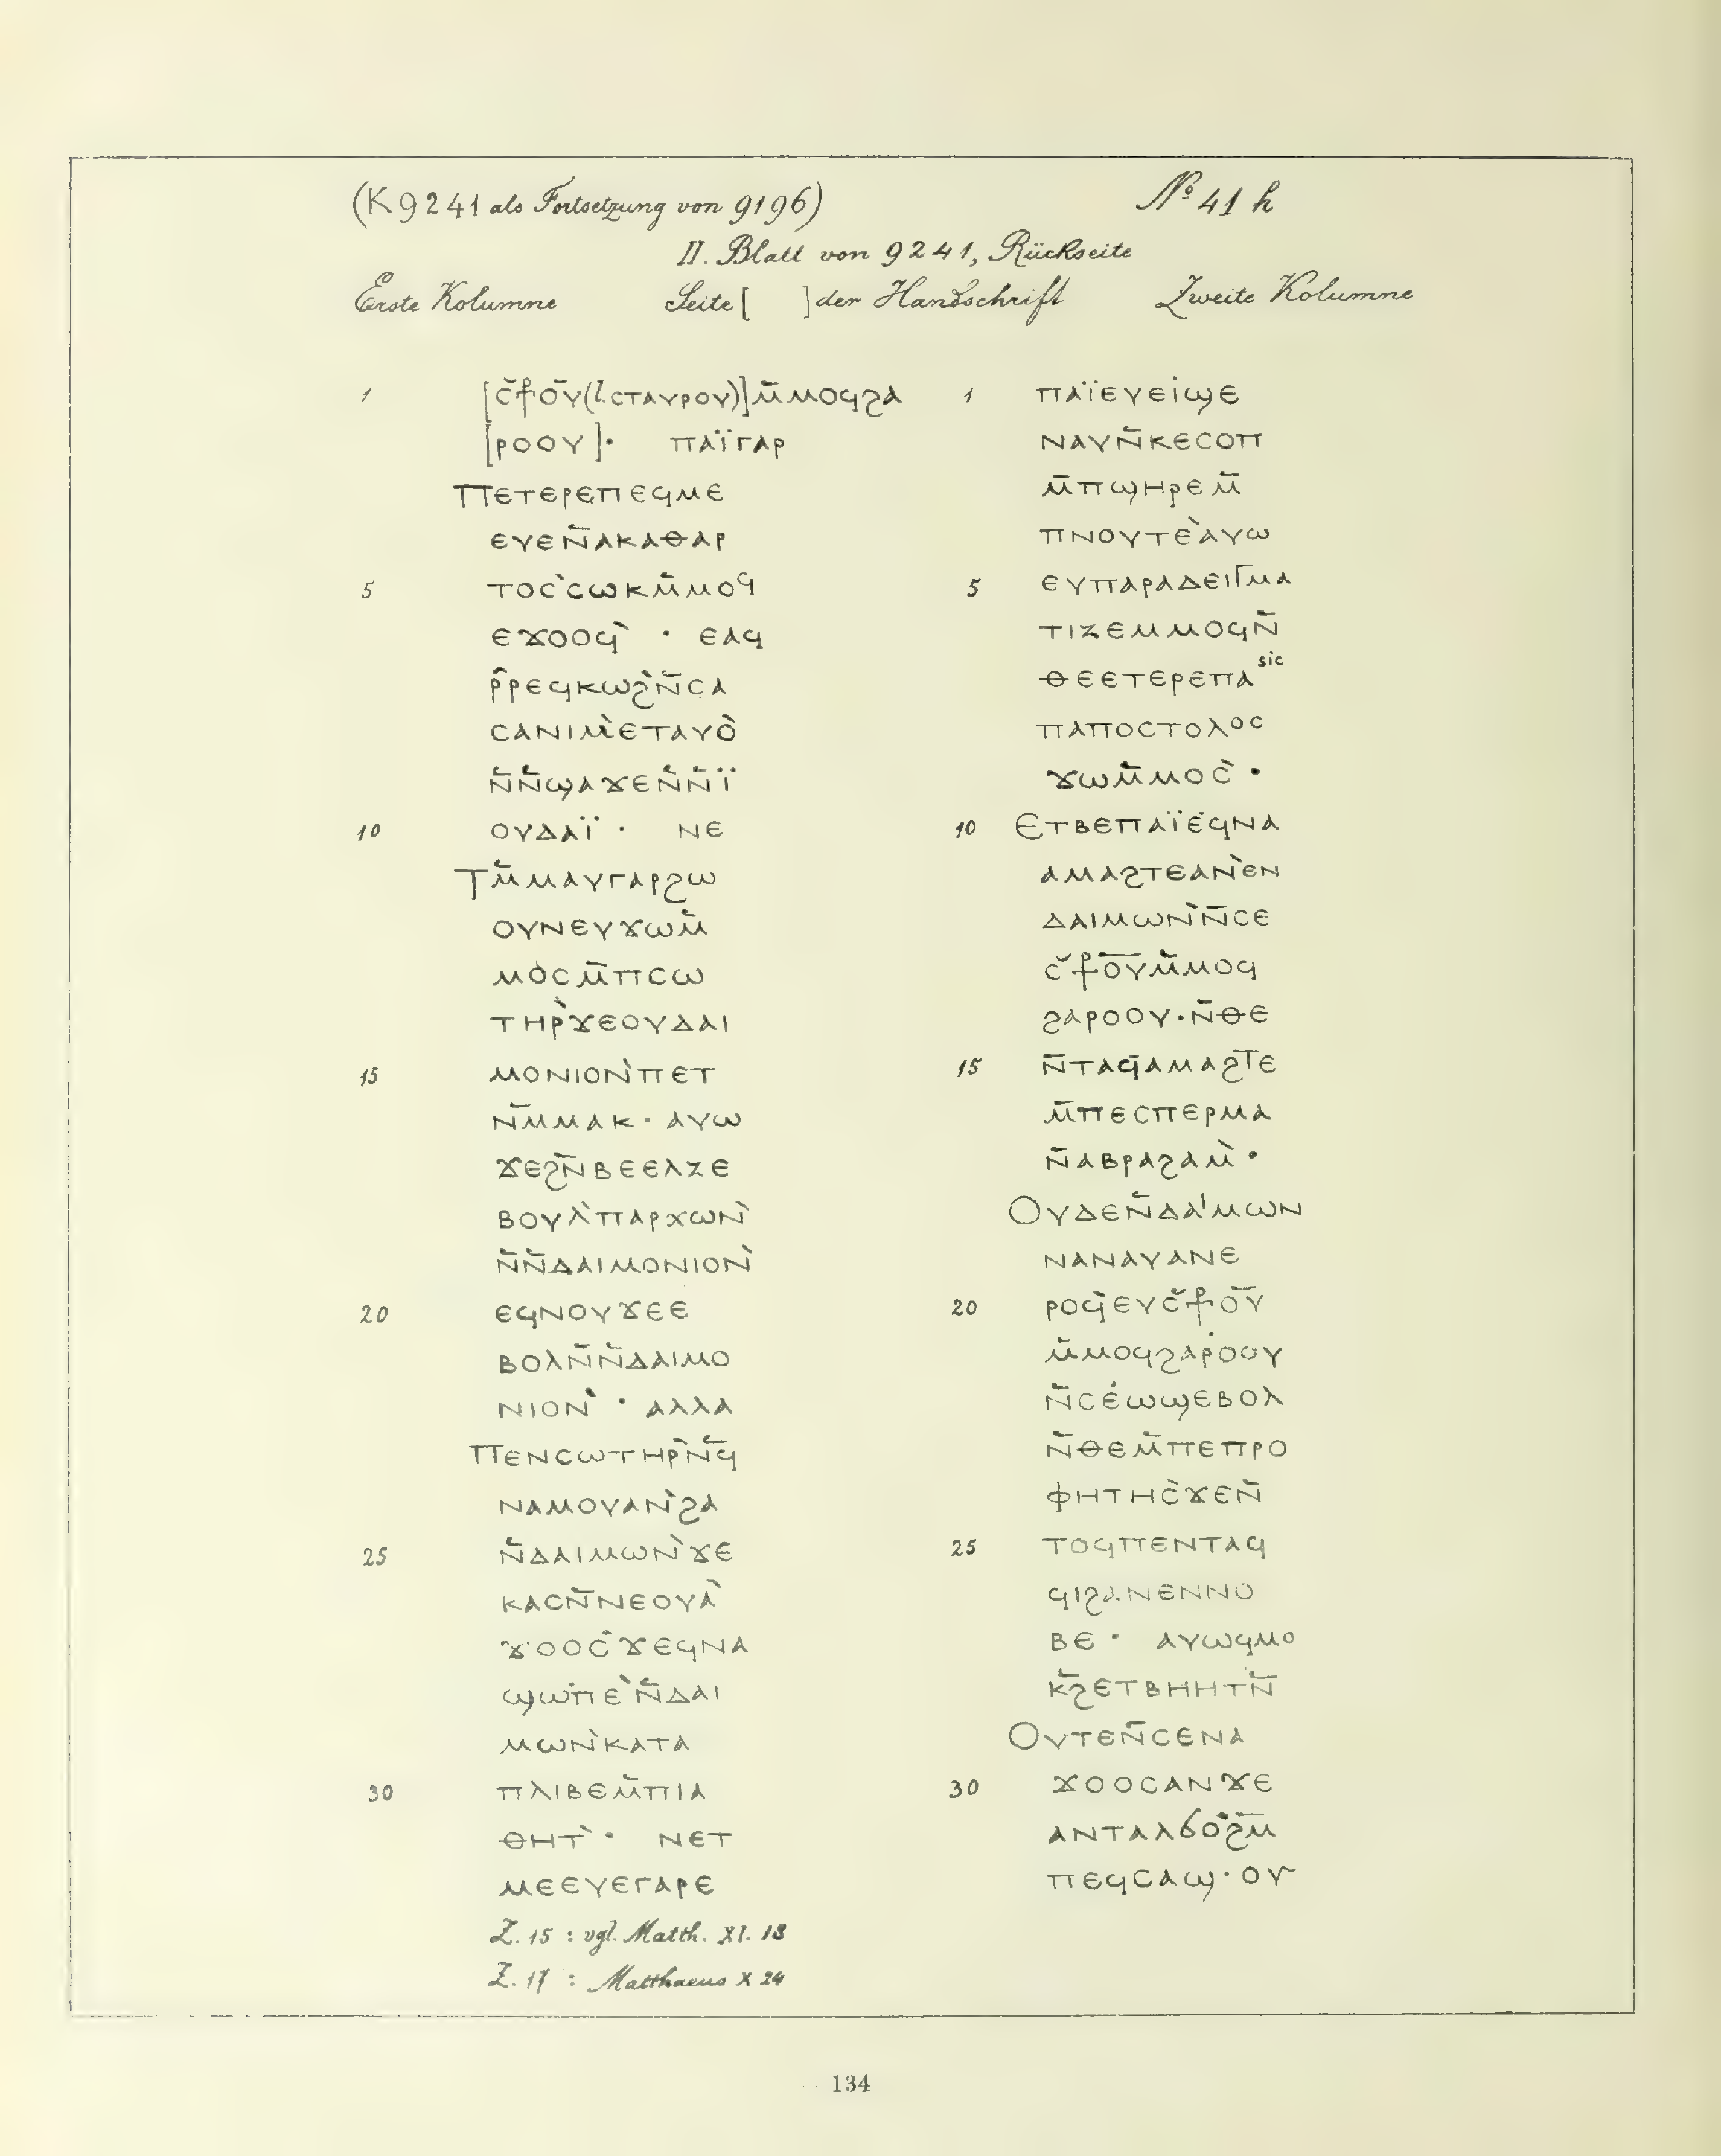 (K 9241 als Fortsetzung von 9196)
Nº 41 h
II. Blatt von 9241, Rückseite
Erste Kolumne Seite [ ] der Handschrift Zweite Kolumne
1 [ⲥ̄⳨ⲟ̄ⲩ(l. ⲥⲧⲁⲩⲣⲟⲩ)]ⲙ̄ⲙⲟϥϩⲁ
[ⲣⲟⲟⲩ]· ⲡⲁⲓ̈ⲅⲁⲣ
Ⲡⲉⲧⲉⲣⲉⲡⲉϥⲙⲉ
ⲉⲩⲉⲛ̄ⲁⲕⲁⲑⲁⲣ
5 ⲧⲟⲥ̀ⲥⲱⲕⲙ̄ⲙⲟϥ
ⲉϫⲟⲟϥ̀ · ⲉⲁϥ
ⲣ̄ⲣⲉϥⲕⲱϩ̀ⲛ̄ⲥⲁ
ⲥⲁⲛⲓⲙ̀ⲉⲧⲁⲩⲟ̀
ⲛ̄ⲛ̄ϣⲁϫⲉⲛ̄ⲛ̄ⲓ̈
10 ⲟⲩⲇⲁⲓ̈· ⲛⲉ
Ⲧⲙ̄ⲙⲁⲩⲅⲁⲣϩⲱ
ⲟⲩⲛⲉⲩϫⲱⲙ̄
ⲙⲟ̀ⲥⲙ̄ⲡⲥⲱ
ⲧⲏⲣ̀ϫⲉⲟⲩⲇⲁⲓ
15 ⲙⲟⲛⲓⲟⲛ̀ⲡⲉⲧ
ⲛ̄ⲙⲙⲁⲕ· ⲁⲩⲱ
ϫⲉϩⲛ̄ⲃⲉⲉⲗⲍⲉ
ⲃⲟⲩⲗ̀ⲡⲁⲣⲭⲱⲛ̀
ⲛ̄ⲛ̄ⲇⲁⲓⲙⲟⲛⲓⲟⲛ̀
20 ⲉϥⲛⲟⲩϫⲉⲉ
ⲃⲟⲗⲛ̄ⲛ̄ⲇⲁⲓⲙⲟ
ⲛⲓⲟⲛ̀ · ⲁⲗⲗⲁ
Ⲡⲉⲛⲥⲱⲧⲏⲣ̀ⲛ̄ϥ̄
ⲛⲁⲙⲟⲩⲁⲛ̀ϩⲁ
25 ⲛ̄ⲇⲁⲓⲙⲱⲛ̀ϫⲉ
ⲕⲁⲥⲛ̄ⲛⲉⲟⲩⲁ̀
ϫⲟⲟⲥ̀ϫⲉϥⲛⲁ
ϣⲱⲡⲉ̀ⲛ̄ⲇⲁⲓ
ⲙⲱⲛ̀ⲕⲁⲧⲁ
30 ⲡⲗⲓⲃⲉⲙ̄ⲡⲓⲁ
ⲑⲏⲧ̀· ⲛⲉⲧ
ⲙⲉⲉⲩⲉⲅⲁⲣⲉ
Z. 15 : vgl. Matth. XI. 18
Z. 17 : Matthaeus X 24
1 ⲡⲁⲓ̈ⲉⲩⲉⲓϣⲉ
ⲛⲁⲩⲛ̄ⲕⲉⲥⲟⲡ
ⲙ̄ⲡϣⲏⲣⲉⲙ̄
ⲡⲛⲟⲩⲧⲉ̀ⲁⲩⲱ
5 ⲉⲩⲡⲁⲣⲁⲇⲉⲓⲅⲙⲁ
ⲧⲓⲍⲉⲙⲙⲟϥⲛ̄
ⲑⲉⲉⲧⲉⲣⲉⲡⲁ sic
ⲡⲁⲡⲟⲥⲧⲟⲗⲟⲥ
ϫⲱⲙ̄ⲙⲟⲥ̀·
10 Ⲉⲧⲃⲉⲡⲁⲓ̈ⲉϥⲛⲁ
ⲁⲙⲁϩⲧⲉⲁⲛ̀ⲉⲛ
ⲇⲁⲓⲙⲱⲛ̀ⲛ̄ⲥⲉ
ⲥ̄⳨ⲟ̄ⲩⲙ̄ⲙⲟϥ
ϩⲁⲣⲟⲟⲩ·ⲛ̄ⲑⲉ
15 ⲛ̄ⲧⲁϥⲁⲙⲁϩⲧⲉ
ⲙ̄ⲡⲉⲥⲡⲉⲣⲙⲁ
ⲛ̄ⲁⲃⲣⲁϩⲁⲙ̀·
Ⲟⲩⲇⲉⲛ̄ⲇⲁⲓⲙⲱⲛ
ⲛⲁⲛⲁⲩⲁⲛⲉ
20 ⲣⲟϥ̀ⲉⲩⲥ̄⳨ⲟ̄ⲩ
ⲙ̄ⲙⲟϥϩⲁⲣⲟⲟⲩ
ⲛ̄ⲥⲉⲱϣⲉⲃⲟⲗ
ⲛ̄ⲑⲉⲙ̄ⲡⲉⲡⲣⲟ
ⲫⲏⲧⲏⲥ̀ϫⲉⲛ̄
25 ⲧⲟϥⲡⲉⲛⲧⲁϥ
ϥⲓϩⲁⲛⲉⲛⲛⲟ
ⲃⲉ· ⲁⲩⲱϥⲙⲟ
ⲕ̄ϩⲉⲧⲃⲏⲏⲧⲛ̄
Ⲟⲩⲧⲉⲛ̄ⲥⲉⲛⲁ
30 ϫⲟⲟⲥⲁⲛϫⲉ
ⲁⲛⲧⲁⲗϭⲟ̀ϩⲙ̄
ⲡⲉϥⲥⲁϣ·ⲟⲩ
-- 134 --